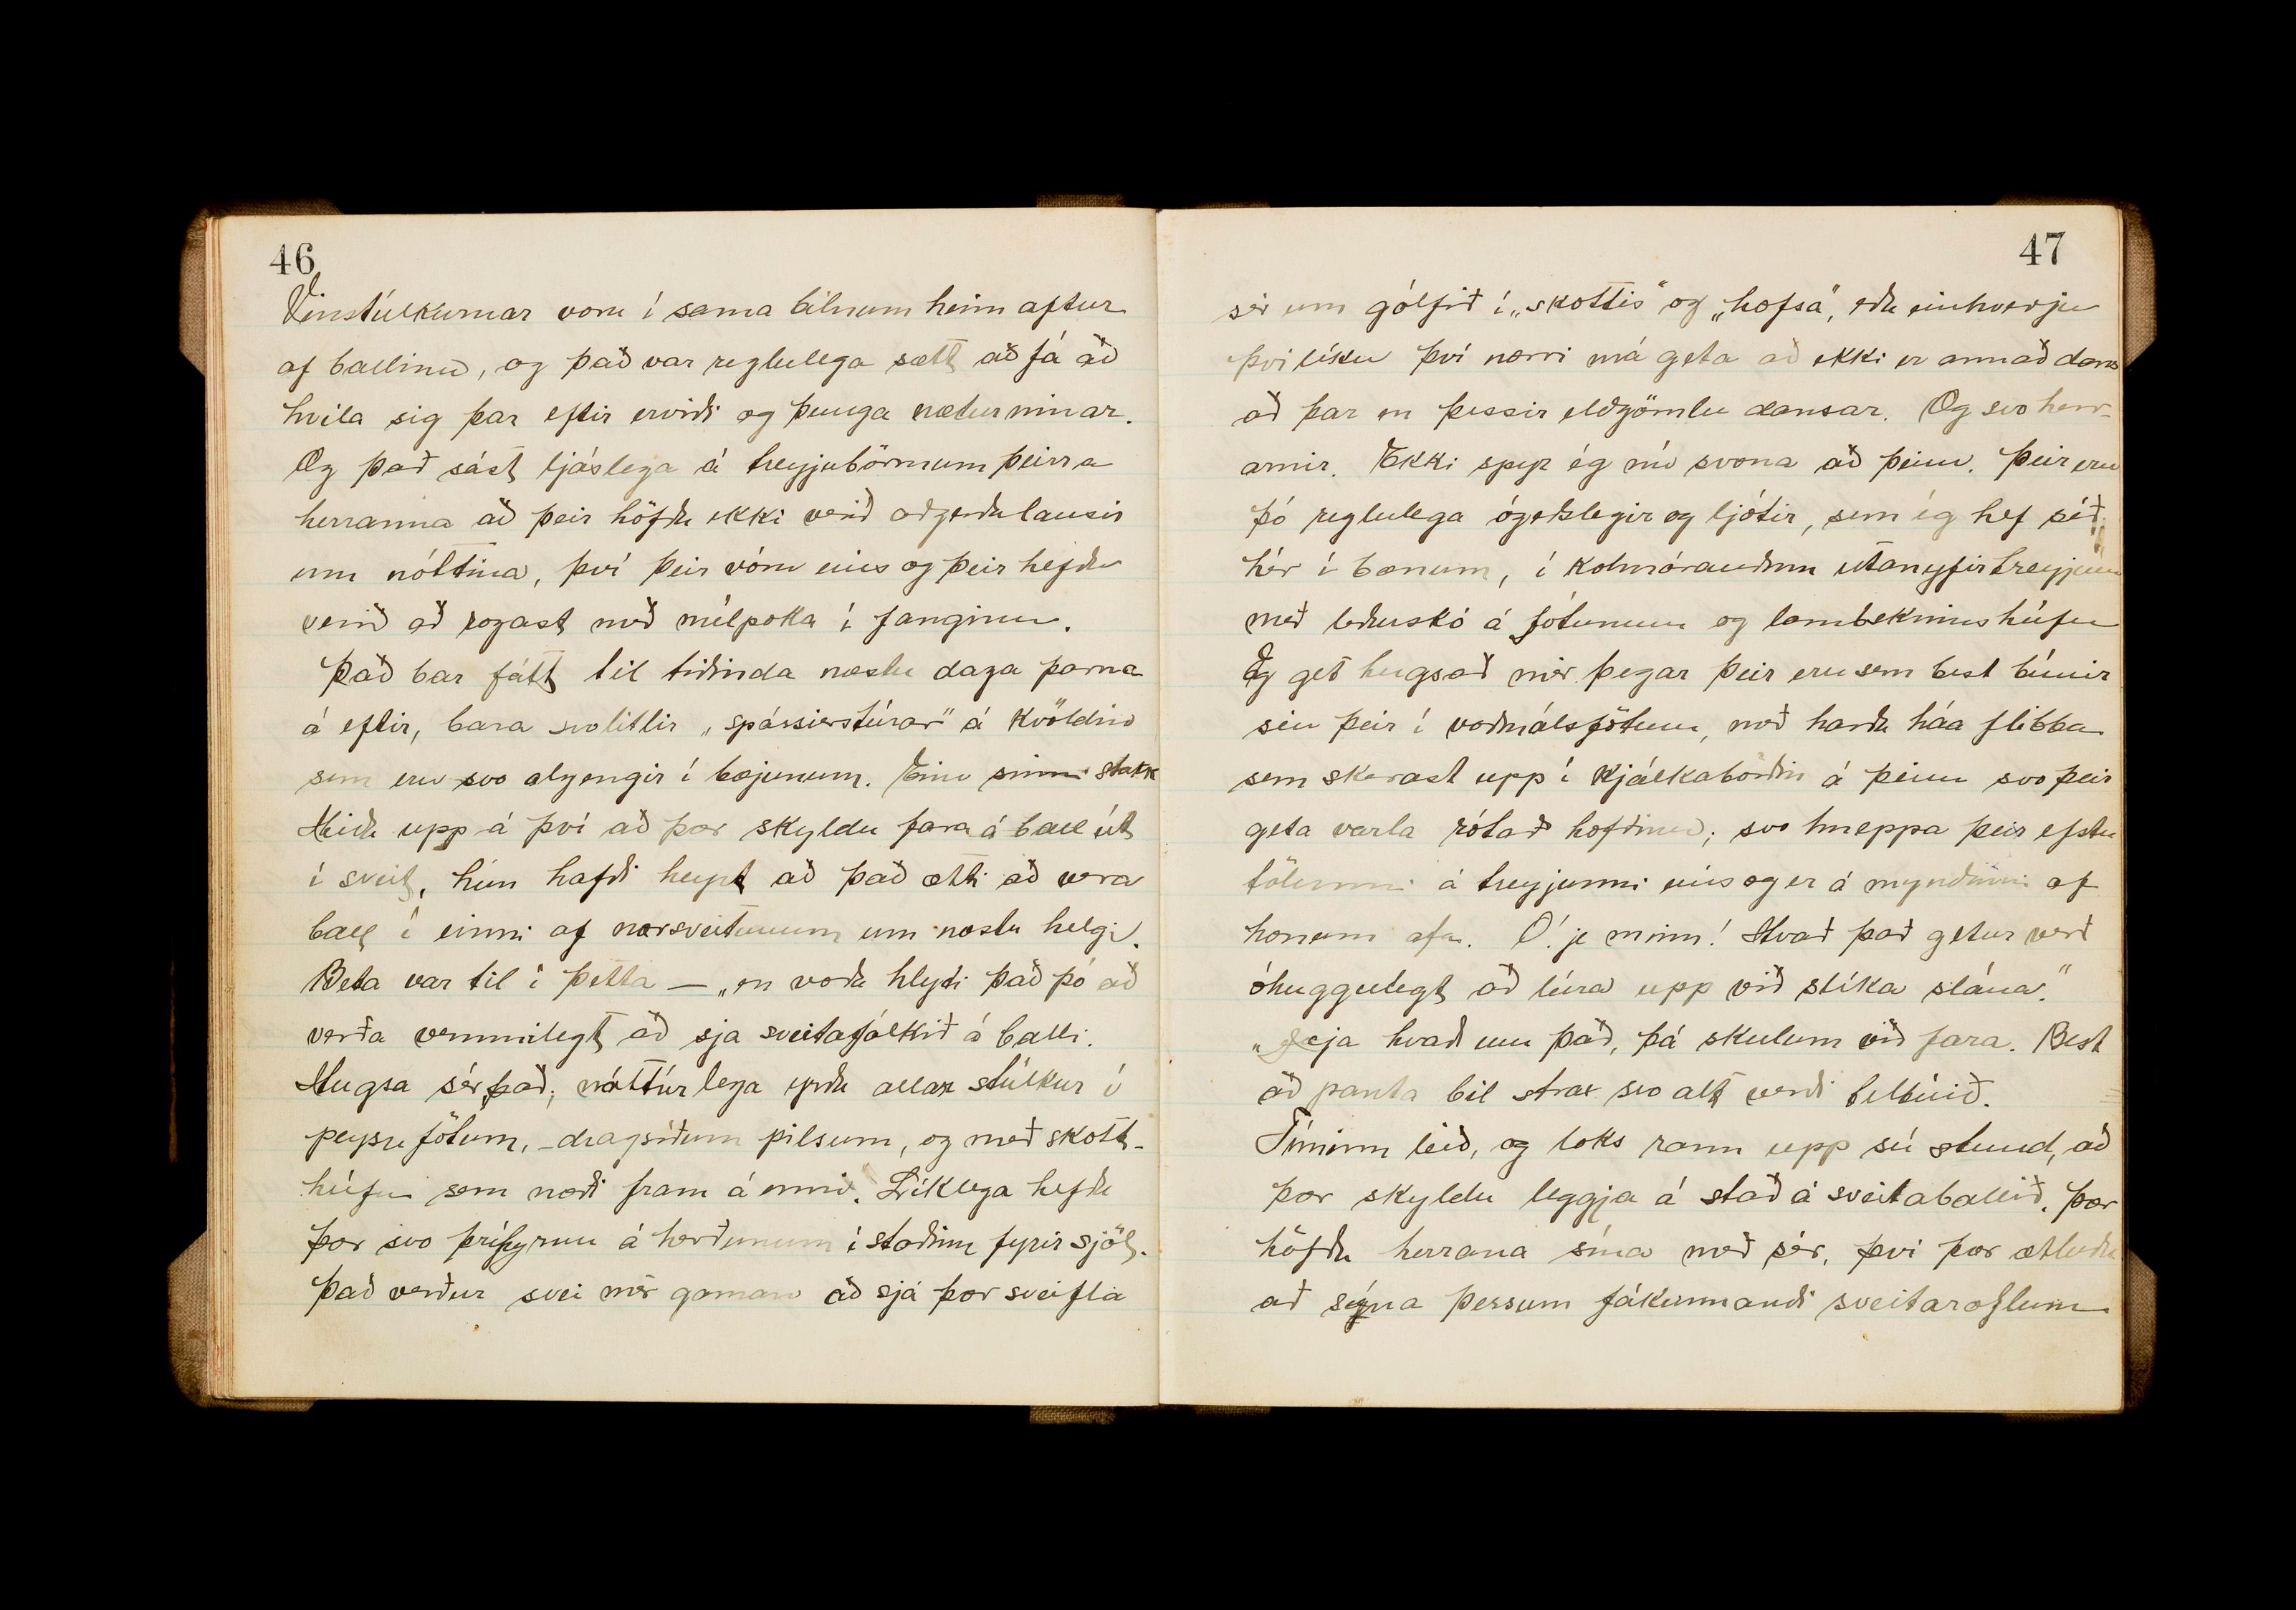 46
Vinstúlkurnar voru í sama bílnum heim aftur
af ballinu, og það var reglulega sætt að fá að
hvíla sig þar eftir erviði og þunga næturninar.
Og það sást ljóslega á treyjubörmum þeirra
herranna að þeir höfðu ekki verið aðgerðulausir
um nóttina, því þeir vóru eins og þeir hefðu
verið að rogast með mélpoka í fanginu.
Það bar fátt til tiðinda næstu daga þarna
á eftir, bara svolitlir „spássierstúrar" á kvöldin
sem eru svo algengir í bæjunum. Einu sinni stakk
Heiða upp á því að þær skyldu fara á ball út
í sveit, hún hafði heyrt að það ætti að vera
ball í einni af nærsveitunum um næstu helgi.
Beta var til í þetta — „en voða hlyti það þó að
verða vemmilegt að sjá sveitafólkið á balli.
Hugsa sér það; náttúrlega yrðu allar stúlkur í
peysufötum, - dragsíðum pilsum, og með skott-
húfu sem næði fram á enni. Líklega hefðu
þær svo þríhyrnu á herðunum í staðinn fyrir sjöl.
Það verður svei mér gaman að sjá þær sveifla
47
sér um gólfið í „skottis" og „hofsa", eða einhverju
því líku því nærri má geta að ekki er annað dans
að þar en þessir eldgömlu dansar. Og svo herr-
arnir. Ekki spyr ég nú svona að þeim. Þeir eru
þó reglulega ógeðslegir og ljótir, sem ég hef séð
hér í bænum, í kolmórauðum utanyfirtreyjum
með leðurskó á fótunum og lambskinnshúfu
Ég get hugsað mér þegar þeir eru sem best búnir
séu þeir í vaðmálsfötum, með harða háa flibba
sem skerast upp í kjálkabörðin á þeim svo þeir
geta varla rótað höfðinu; svo hneppa þeir efstu
tölunni á treyjunni eins og er á myndinni af
honum afa. Ó! je minn! Hvað það getur verð
óhuggulegt að lúra upp við slíka slána."
„Jæja hvað um það, þá skulum við fara. Best
að panta bíl strax svo alt verði tilbúið.
Tíminn leið, og loks rann upp sú stund, að
þær skyldu leggja á stað á sveitaballið. Þær
höfðu herrana sína með sér, því þær ætluðu
að sýna þessum fákunnandi sveitaræflum